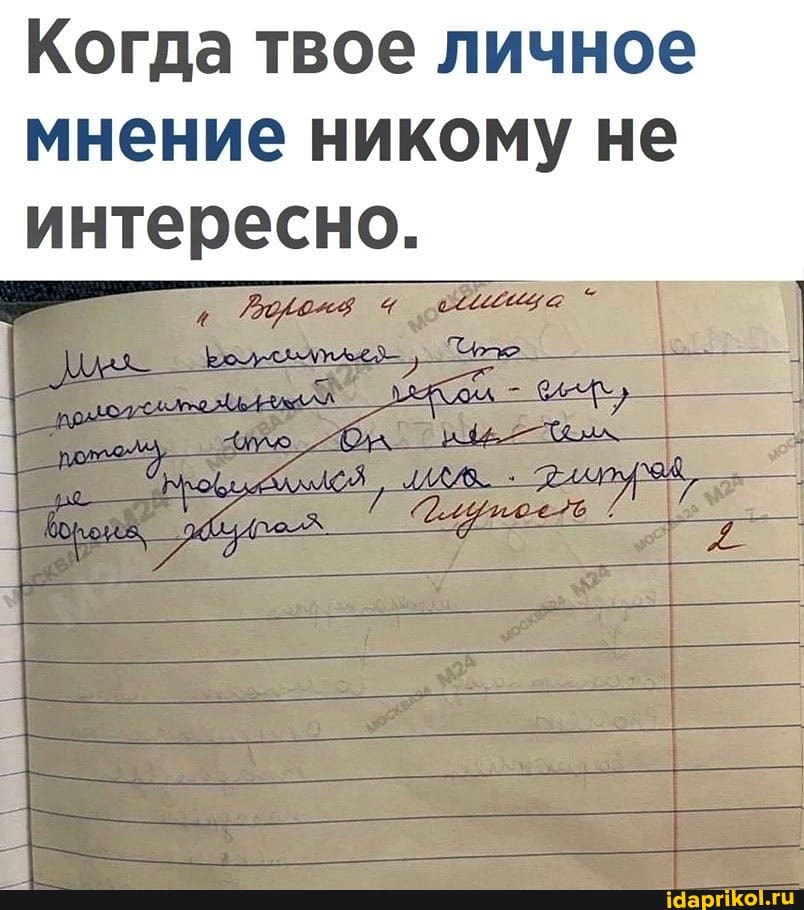 Когда твое личное
мнение никому не
интересно.
„ Ворона и лисица "
Мне кажиться, что
положительный герой - сыр,
потому что он не чем
не провинился, лиса - хитрая,
ворона глупая. Глупость!
2
МОСКВА24 М24
idaprikol.ru